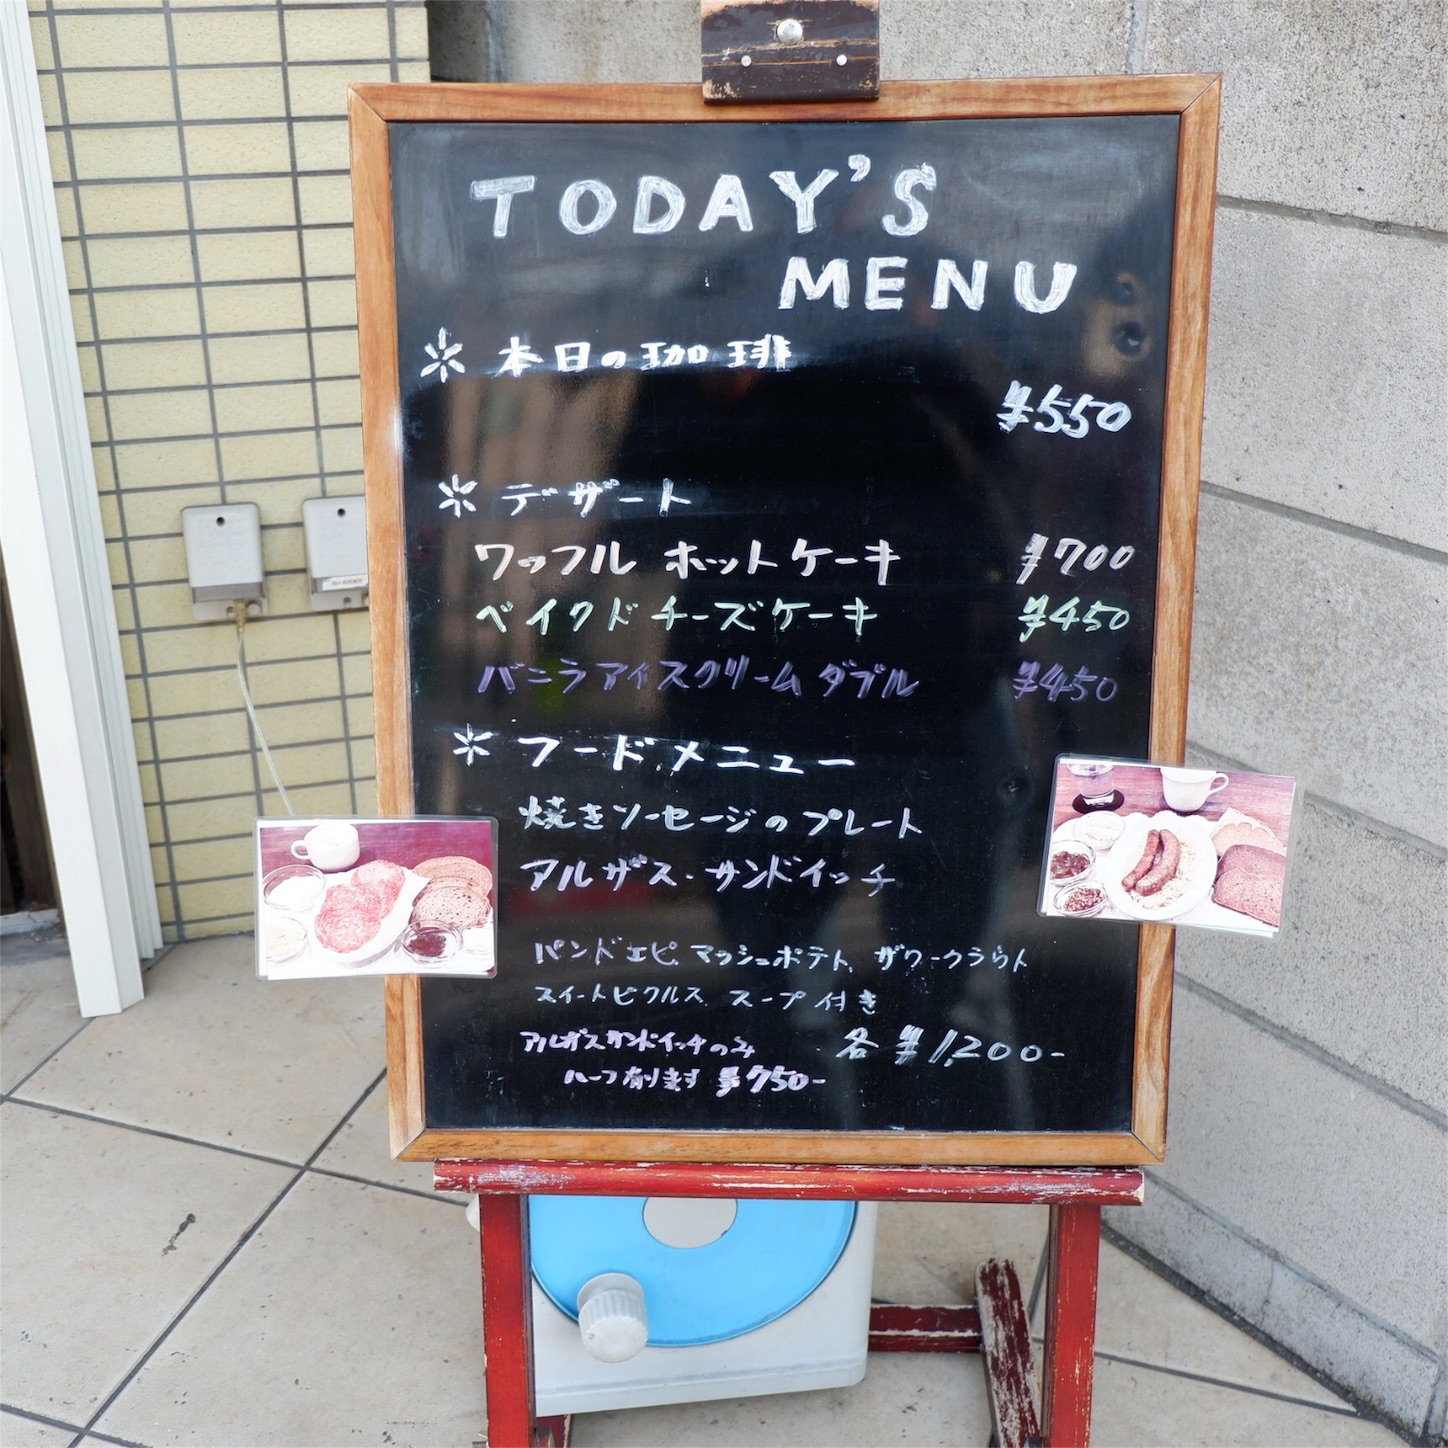 TODAY'S
MENU
＊ 本日の珈琲
¥550
＊ デザート
ワッフル ホットケーキ ¥700
ベイクドチーズケーキ ¥450
バニラアイスクリームダブル ¥450
＊ フードメニュー
焼きソーセージのプレート
アルザス・サンドイッチ
パンドエピ、マッシュポテト、ザワークラウト
スイートピクルス、スープ付き
アルザスサンドイッチのみ 各 ¥1,200-
ハーフ有ります ¥750-